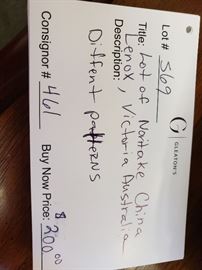 G
GLEATON'S
Lot # 569
Title: Lot of Noitake China
Lenox, Victoria Australia
Description:
Diffent patterns
Consignor # 461
Buy Now Price: $200.00